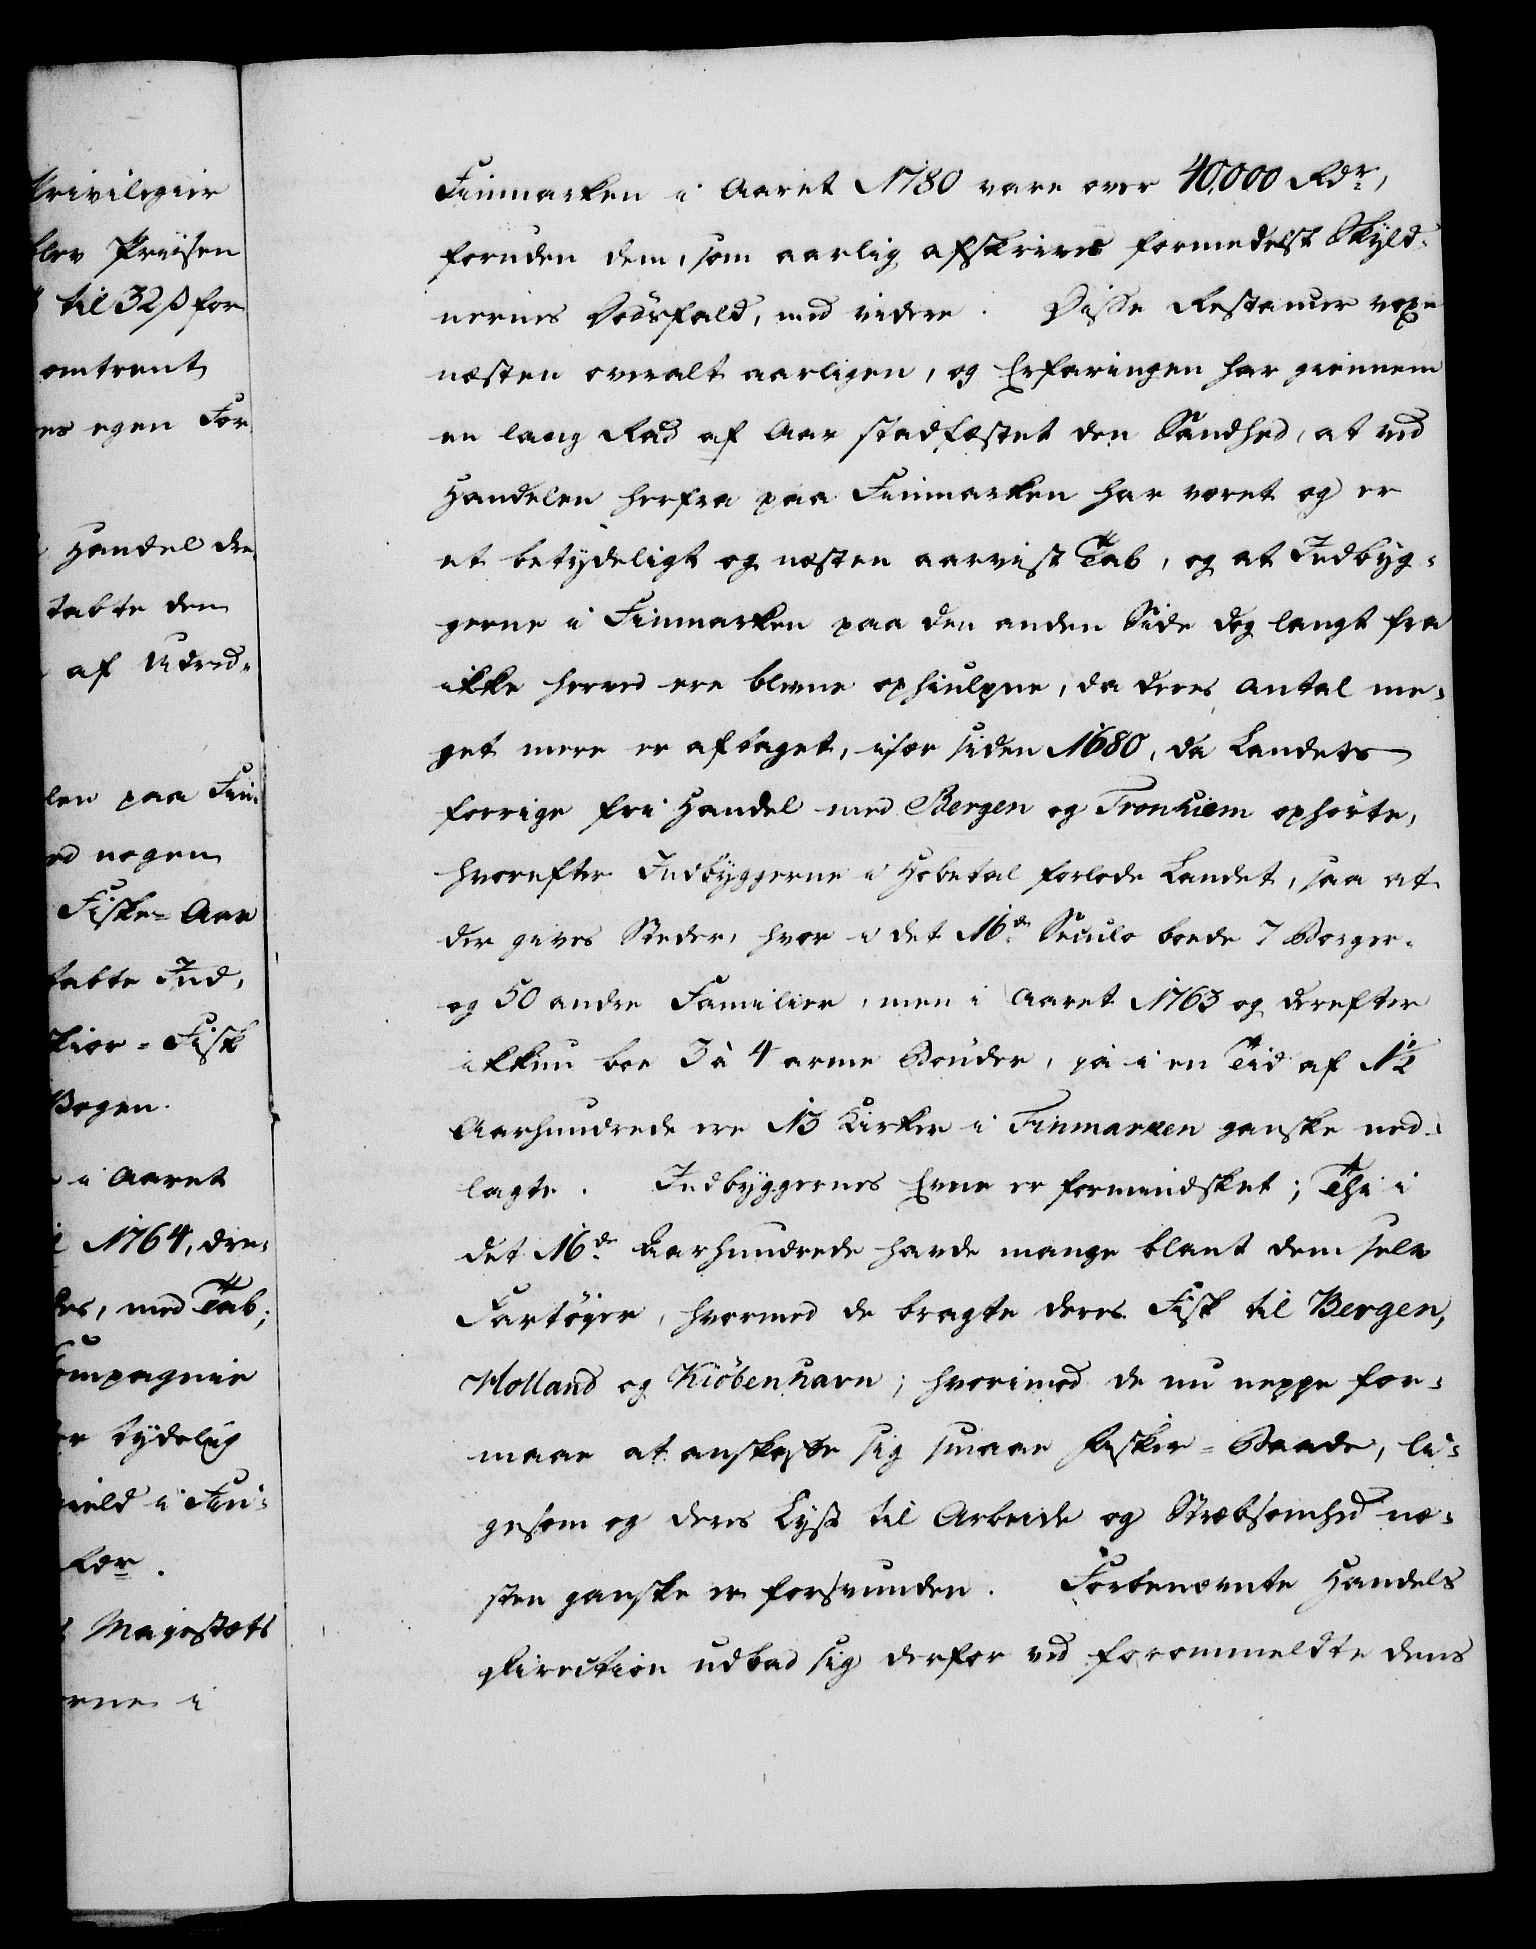 Privilegier
blev Priisen
til 32 β for
omtrent
es egen For
Handel dre
tabte den
af Udred-
len paa Fin-
ed nogen
Fiske-Aar
tabte Ind,
Skior-Fisk
Bogen.
i Aaret
i 1764, dre-
des, med Tab;
Compagnie
er tydelig
gield i Fin-
Rdr.
Majestæts
erne i
Finmarken i Aaret 1780 vare over 40,000 Rdr,
foruden dem, som aarlig afskrives formedelst Skyld-
nernes Dødsfald, med videre. Disse Restancer voxe
næsten overalt aarligen, og Erfaringen har giennem
en lang Rad af Aar stadfæstet den Sandhed, at ved
Handelen herfra paa Finmarken har været og er
et betydeligt og næsten aarvist Tab, og at Indbyg-
gerne i Finmarken paa den anden Side dog langt fra
ikke herved ere blevne ophiulpne, da deres Antal me-
get mere er aftaget, især siden 1680, da Landets
forrige fri Handel med Bergen og Tronhiem ophörte,
hvorefter Indbyggerne i Hobetal forlode Landet, saa at
der gives Steder, hvor i det 16de Seculo boede 7 Borger-
og 50 andre Familier, men i Aaret 1763 og derefter
ikkun boe 3 à 4 arme Bönder, ja i en Tid af 1½
Aarhundrede ere 13 Kirker i Finmarken ganske ned-
lagte. Indbyggernes Evne er formindsket; Thi i
det 16de Aarhundrede havde mange blant dem selv
Fartöjer, hvormed de bragte deres Fisk til Bergen,
Holland og Kiöbenhavn; hvorimod de nu neppe for-
maae at anskaffe sig smaae Fisker-Baade, li-
gesom og deres Lyst til Arbeide og Stræbsomhed næ-
sten ganske er forsvunden. Forbenævnte Handels
Direction udbad sig derfor ved forommeldte dens